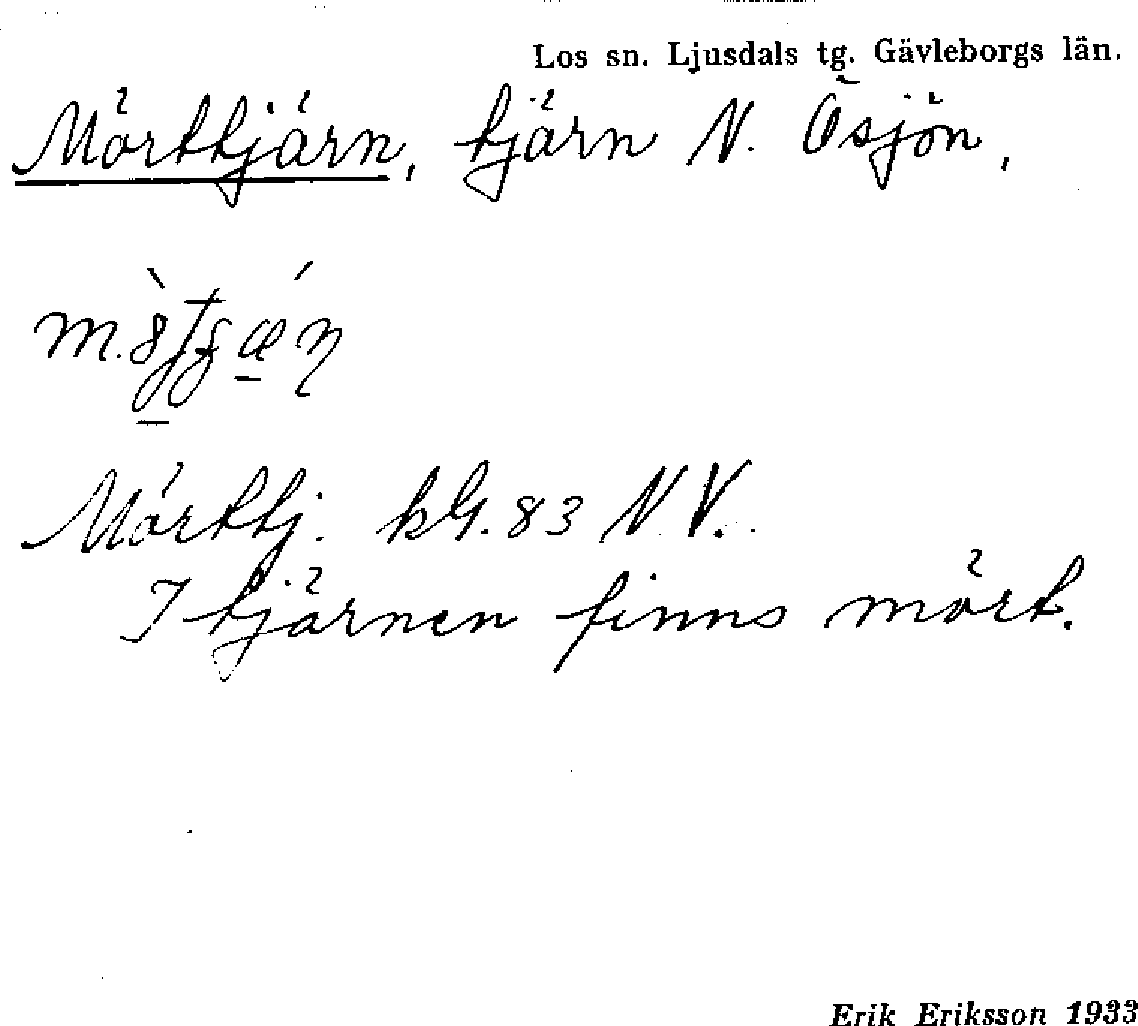 Los sn. Ljusdals tg. Gävleborgs län.
Mörttjärn, tjärn N. Ösjön,
Mörttj. kbl. 83 N.V.
I tjärnen finns mört.
Erik Eriksson 1933